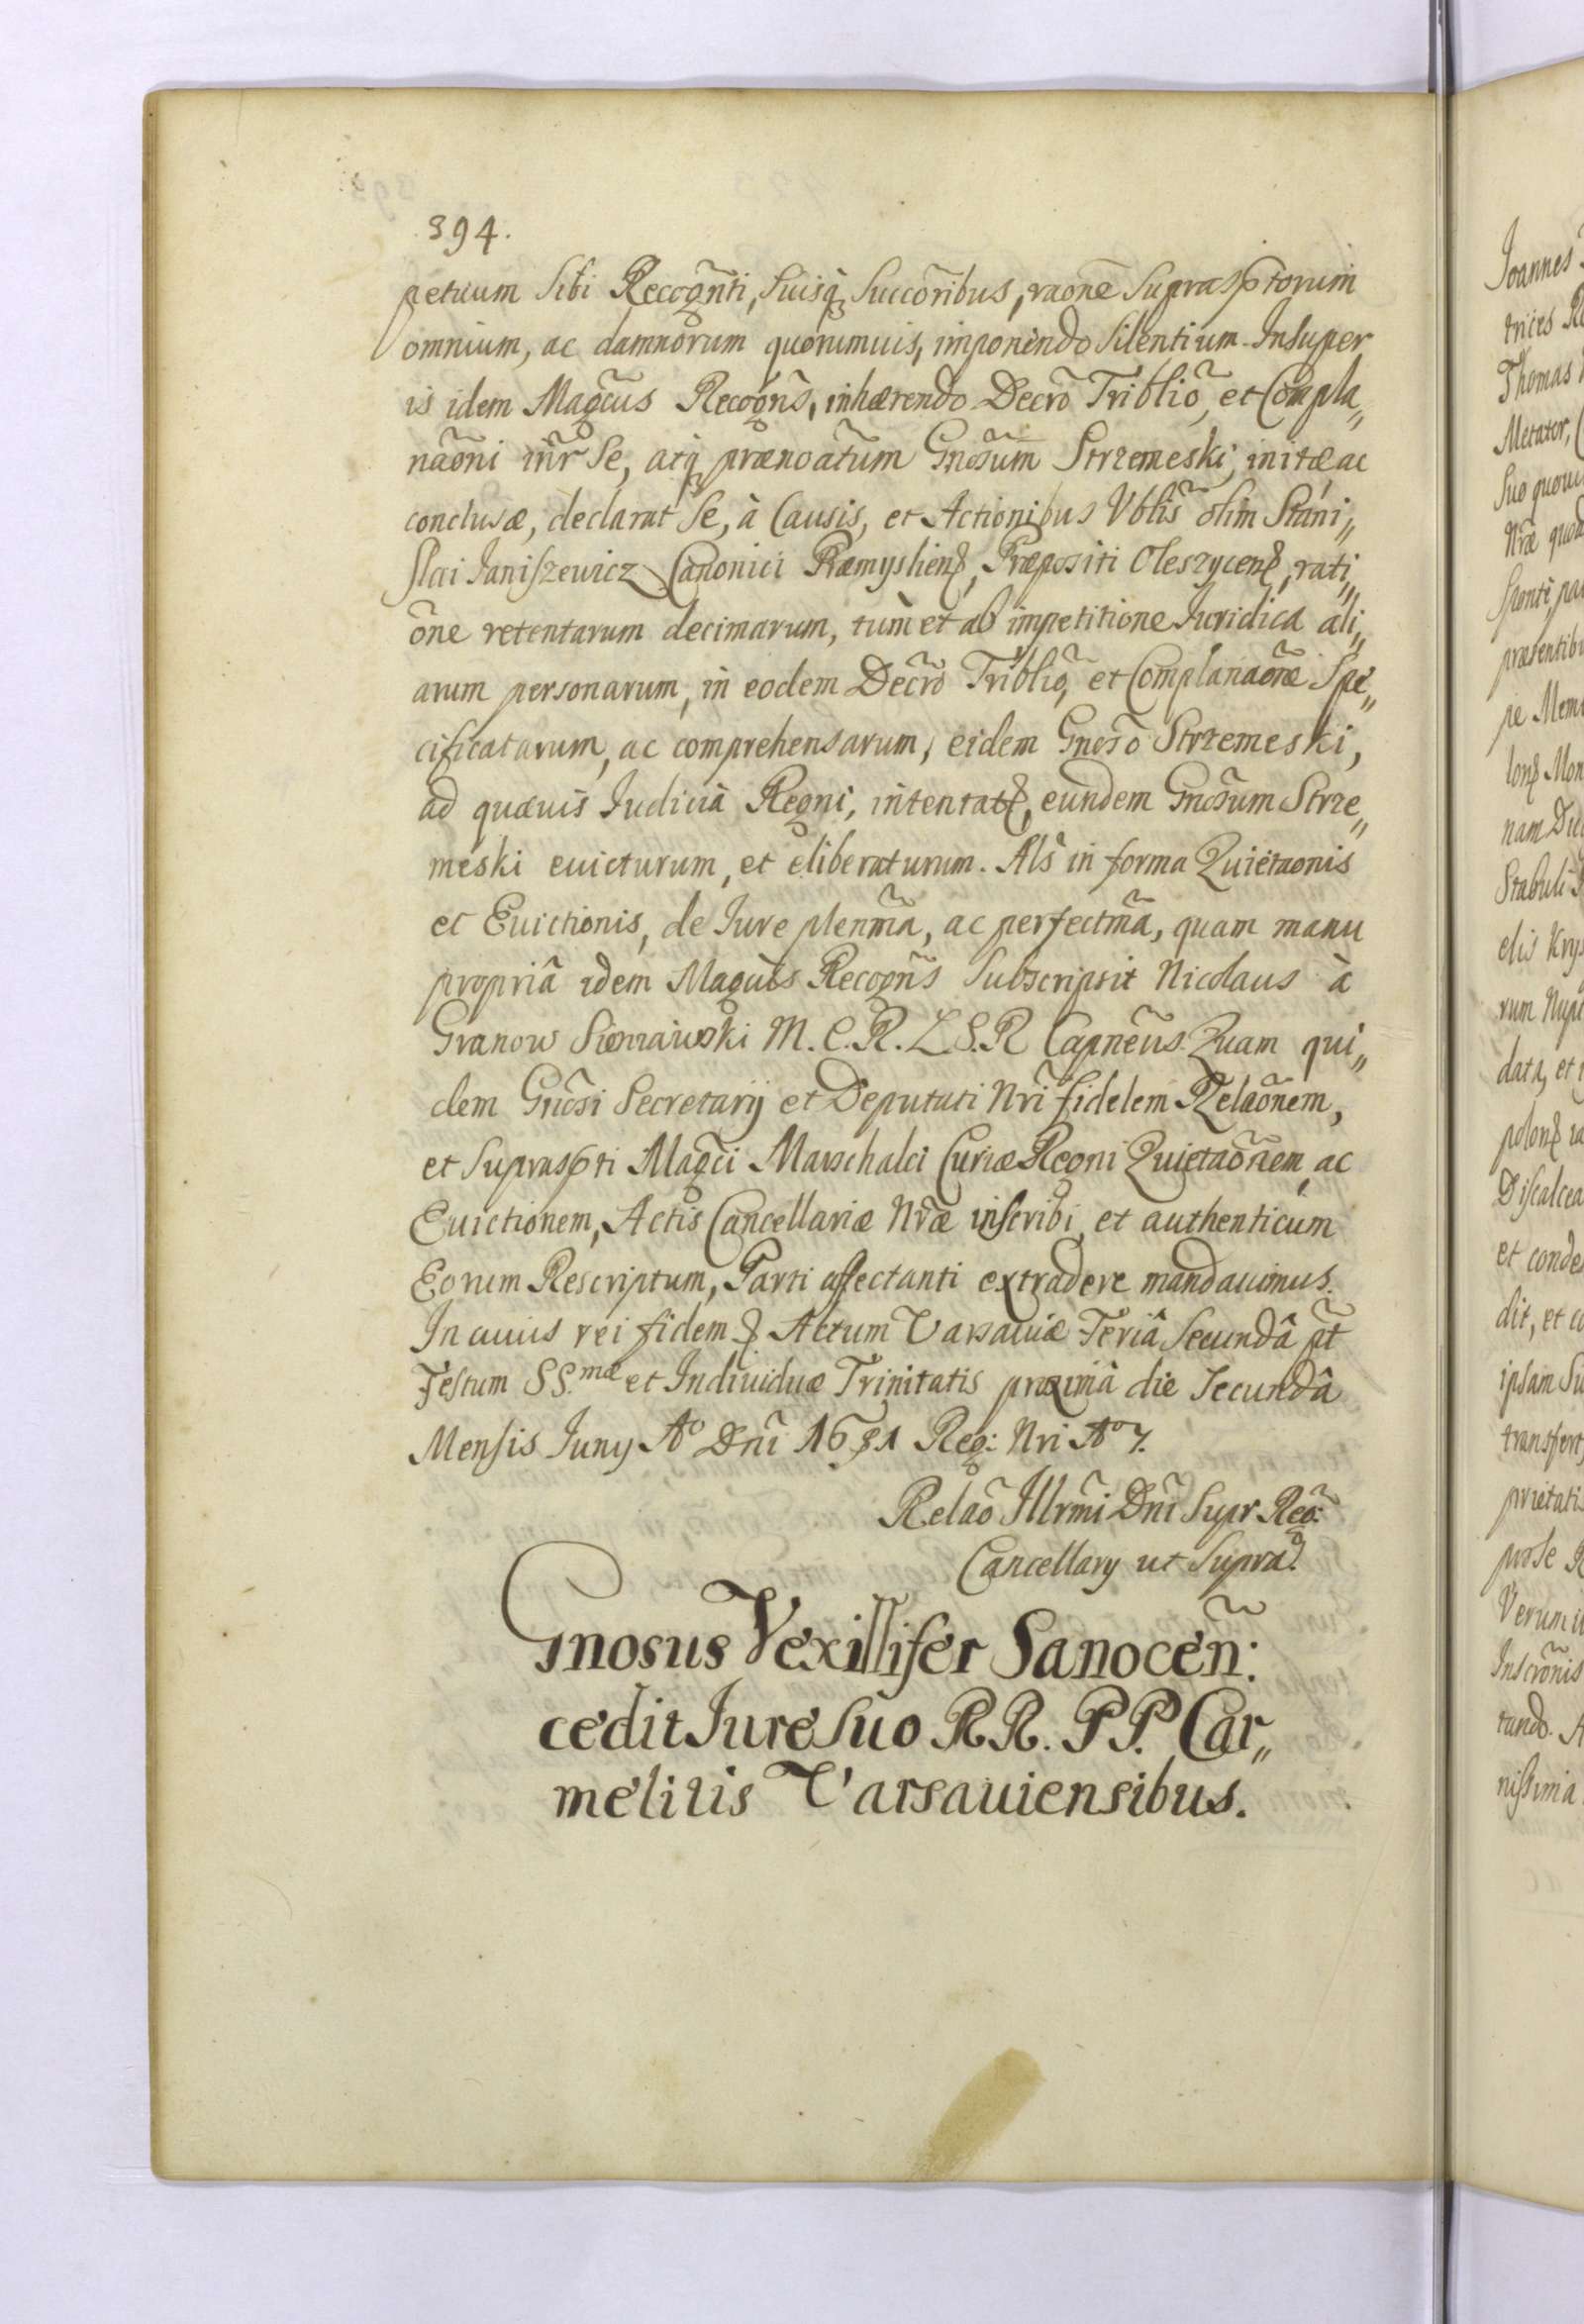 394.
petuum Sibi Recogñti, Suisq; Succoribus, raõne Suprasptorum
omnium, ac damnorum quorumuis, imponendo Silentium. Insuper
is idem Magcus Recogñs, inhærendo Decrõ Tribliõ, et Compla„
naõni iñr Se, atq; prænoatum Gnosum Strzemeski, initæ ac
conclusæ, declarat Se, à Causis, et Actionibus Vblis olim Stani„
slai Janiszewicz Canonici Præmyslien̄, Præpositi Oleszycen̄, rati„
one retentarum decimarum, tum et ab impetitione Juridica ali„
arum personarum, in eodem Decrõ Tribliõ, et Complanaõne Spe„
cificatarum, ac comprehensarum, eidem Gnosõ Strzemeski,
ad quævis Judicia Regni, intentat, eundem Gnosum Strze„
meski euicturum, et eliberaturum. Als in forma Quietaonis
et Euictionis, de Jure plenm̃a, ac perfectm̃a, quam manu
propriâ idem Magcus Recogñs Subscripsit Nicolaus à
Granow Sieniawski M. C. R. L. S. R Capneus. Quam qui„
dem Gnosi Secretarij et Deputati Nri fidelem Relaõnem,
et Supraspti Magci Marschalci Curiæ Regni Quietaõnem, ac
Euictionem, Actis Cancellariæ Nræ inscribi, et authenticum
Eorum Rescriptum, Parti affectanti extradere mandauimus.
In cuius rei fidem Actum Varsauiæ Feriâ Secundâ pt
Festum SS.mæ et Indiuiduæ Trinitatis proximâ die Secundâ
Mensis Juny Aº Dni 1681 Reg: Nri Aº 7.
Relaõ Illrmi Dni Supr Reg:
Cancellary ut Supra.
Gnosus Vexillifer Sanocen̄:
cedit Jure Suo RR. PP. Car„
melitis Varsauiensibus.